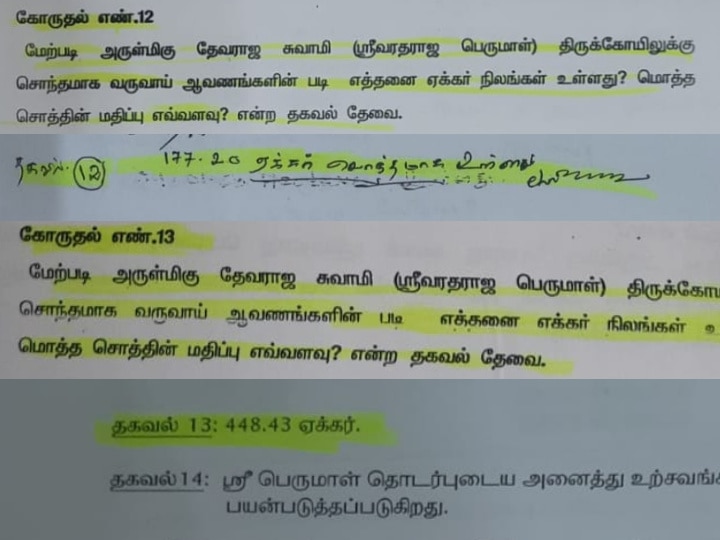 கோருதல் எண்.12
மேற்படி அருள்மிகு தேவராஜ சுவாமி (ஸ்ரீவரதராஜ பெருமாள்) திருக்கோயிலுக்கு
சொந்தமாக வருவாய் ஆவணங்களின் படி எத்தனை ஏக்கர் நிலங்கள் உள்ளது? மொத்த
சொத்தின் மதிப்பு எவ்வளவு? என்ற தகவல் தேவை.
தகவல். 12 177.20 ஏக்கர் மொத்தமாக உள்ளது
கோருதல் எண்.13
மேற்படி அருள்மிகு தேவராஜ சுவாமி (ஸ்ரீவரதராஜ பெருமாள்) திருக்கோய
சொந்தமாக வருவாய் ஆவணங்களின் படி எத்தனை எக்கர் நிலங்கள்
மொத்த சொத்தின் மதிப்பு எவ்வளவு? என்ற தகவல் தேவை.
தகவல் 13: 448.43 ஏக்கர்.
தகவல்14: ஸ்ரீ பெருமாள் தொடர்புடைய அனைத்து உற்சவங்
பயன்படுத்தப்படுகிறது.